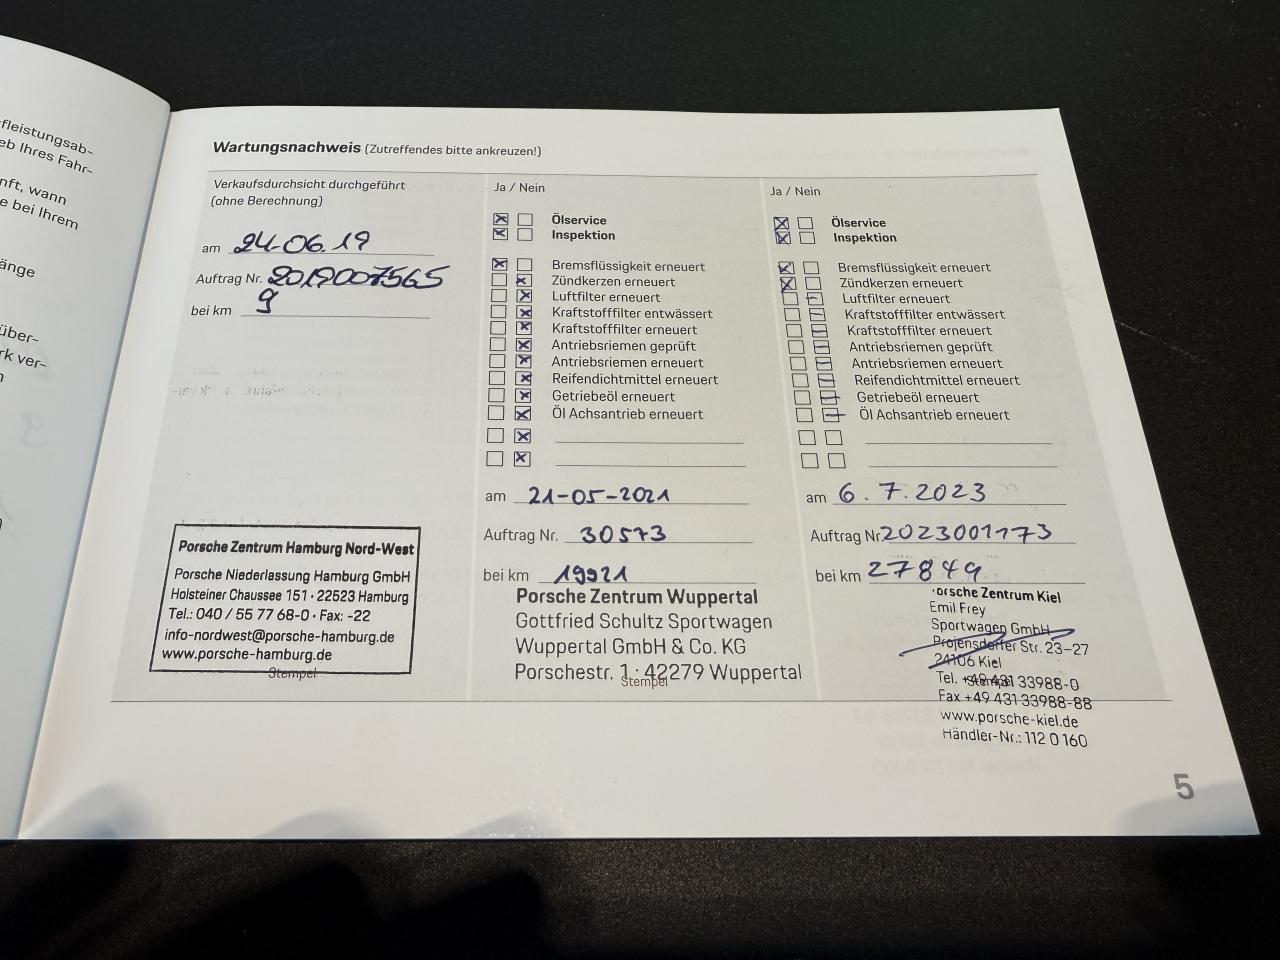 fleistungsab-
eb Ihres Fahr-
nft, wann
e bei Ihrem
änge
über-
rk ver-
Wartungsnachweis (Zutreffendes bitte ankreuzen!)
Verkaufsdurchsicht durchgeführt
(ohne Berechnung)
am 24-06.19
Auftrag Nr. 2019007565
bei km 9
Porsche Zentrum Hamburg Nord-West
Porsche Niederlassung Hamburg GmbH
Holsteiner Chaussee 151 · 22523 Hamburg
Tel.: 040 / 55 77 68-0 · Fax: -22
info-nordwest@porsche-hamburg.de
www.porsche-hamburg.de
Stempel
Ja / Nein
Ölservice
Inspektion
Bremsflüssigkeit erneuert
Zündkerzen erneuert
Luftfilter erneuert
Kraftstofffilter entwässert
Kraftstofffilter erneuert
Antriebsriemen geprüft
Antriebsriemen erneuert
Reifendichtmittel erneuert
Getriebeöl erneuert
Öl Achsantrieb erneuert
am 21-05-2021
Auftrag Nr. 30573
bei km 19921
Porsche Zentrum Wuppertal
Gottfried Schultz Sportwagen
Wuppertal GmbH & Co. KG
Porschestr. 1 · 42279 Wuppertal
Stempel
Ja / Nein
Ölservice
Inspektion
Bremsflüssigkeit erneuert
Zündkerzen erneuert
Luftfilter erneuert
Kraftstofffilter entwässert
Kraftstofffilter erneuert
Antriebsriemen geprüft
Antriebsriemen erneuert
Reifendichtmittel erneuert
Getriebeöl erneuert
Öl Achsantrieb erneuert
am 6.7.2023
Auftrag Nr. 2023001173
bei km 27849
orsche Zentrum Kiel
Emil Frey
Sportwagen GmbH
Projensdorfer Str. 23-27
24106 Kiel
Tel. +49 431 33988-0
Stempel
Fax +49 431 33988-88
www.porsche-kiel.de
Händler-Nr.: 112 0 160
5